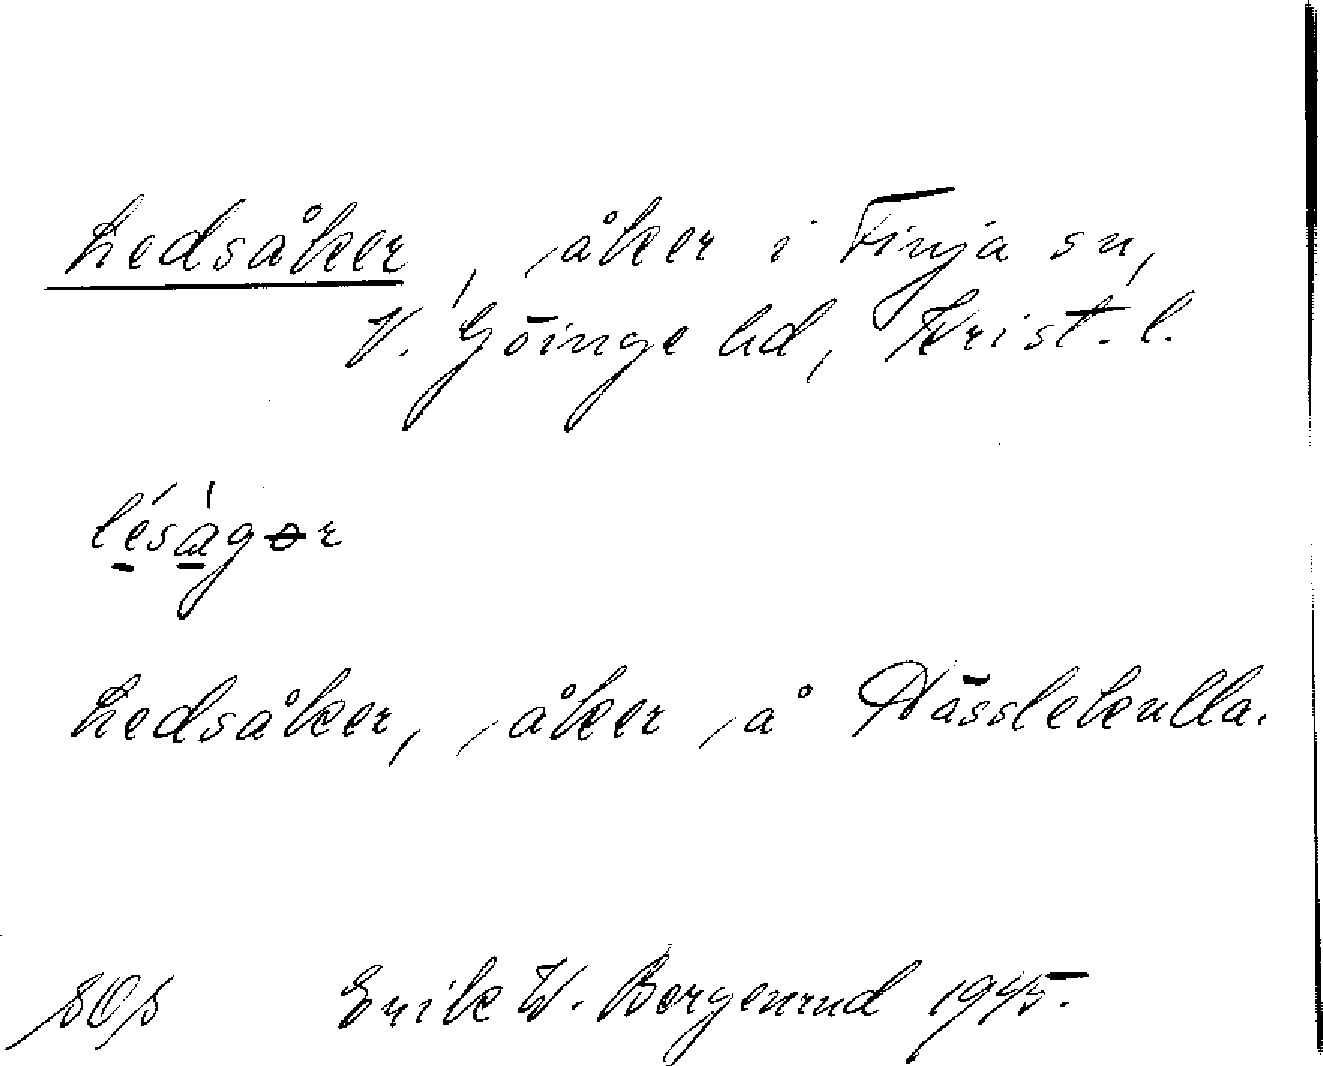 Ledsåker, åker i Finja sn,
V. Göinge hd, Krist. l.
lésàgər
Ledsåker, åker å Hässlekulla.
Erik W. Bergenrud 1945.